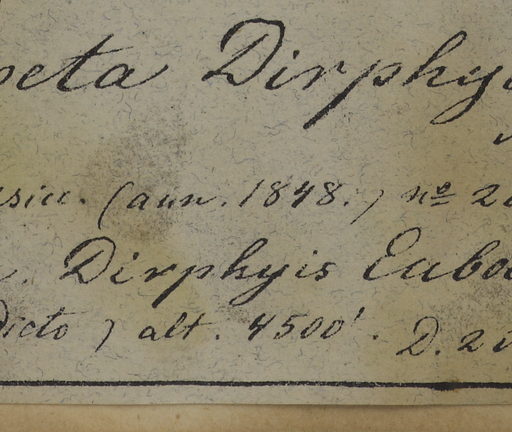 peta Dirphy
exsicc. (ann. 1848.) nº 2
. Dirphyis Euboe
dicto) alt. 4500'. D. 2